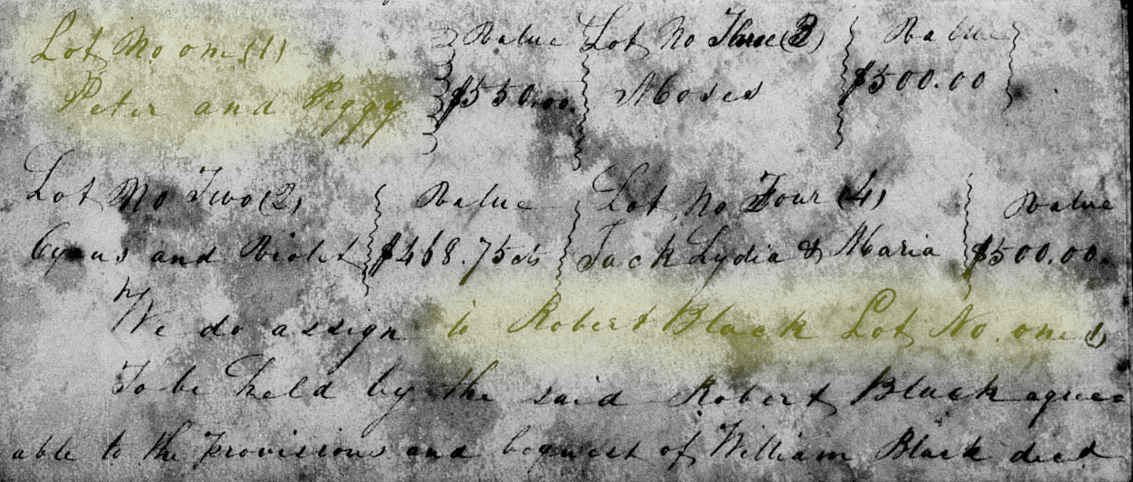 Lot No one (1) Value Lot No Three (3) Value
Peter and Peggy $550.00 Moses $500.00
Lot No Two (2) Value Lot No Four (4) Value
Cyrus and Violet $468.75cts Jack Lydia & Maria $500.00
We do assign to Robert Black Lot No. one (1)
To be held by the said Robert Black agree
able to the provisions and bequest of William Black decd